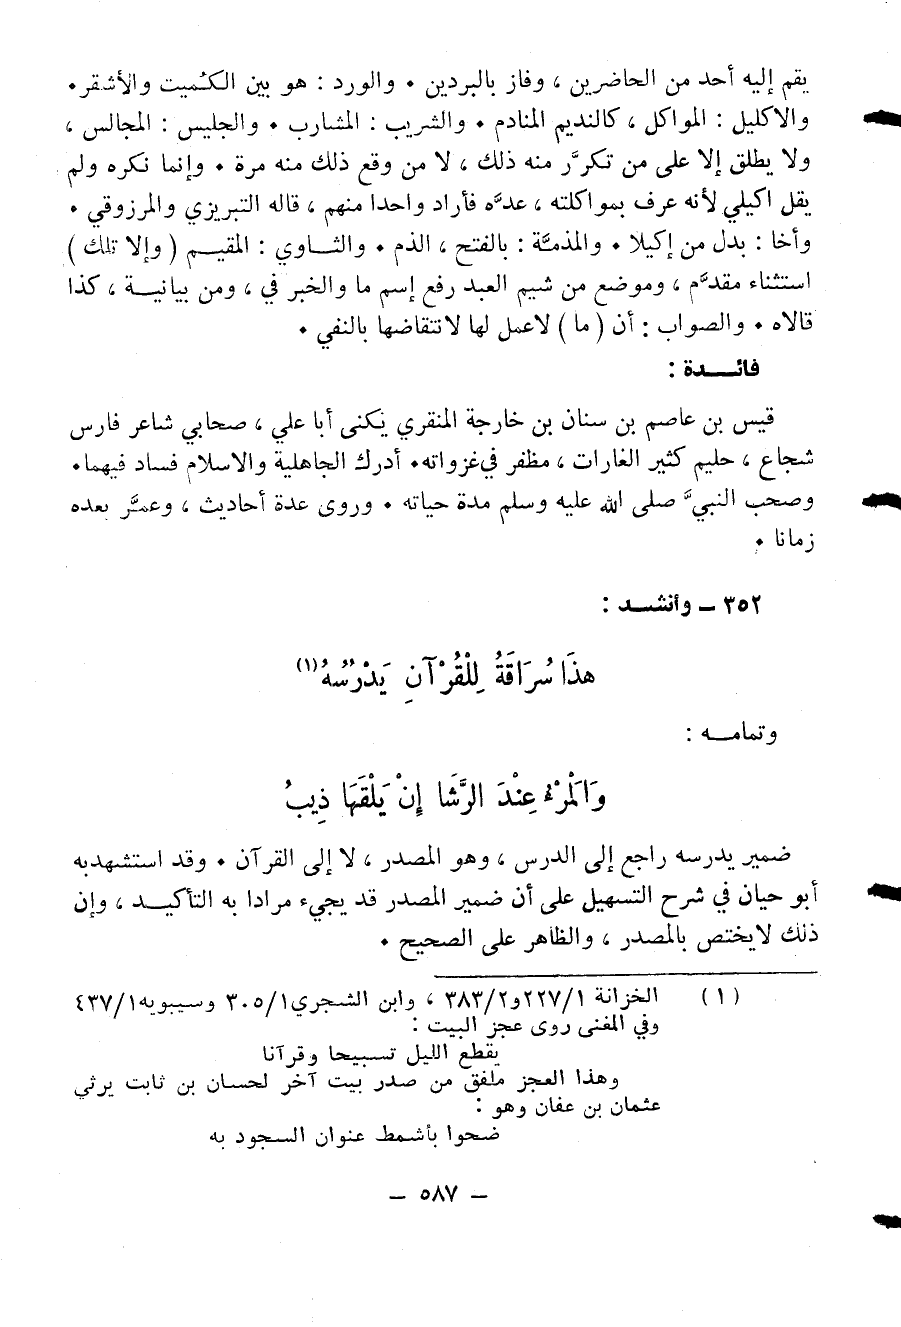 يقم إليه أحد من الحاضرين ، وفاز بالبردين • والورد : هو بين الكُميت والأشقر •
والاكليل : المواكل ، كالنديم المنادم • والشريب : المشارب • والجليس : المجالس ،
ولا يطلق إلا على من تكرَّر منه ذلك ، لا من وقع ذلك منه مرة • وإنما نكره ولم
يقل اكيلي لأنه عرف بمواكلته ، عدَّه فأراد واحدا منهم ، قاله التبريزي والمرزوقي •
وأخا : بدل من إكيلا • والمذمَّة : بالفتح ، الذم • والثاوي : المقيم ( وإلا تلك )
استثناء مقدَّم ، وموضع من شيم العبد رفع إسم ما والخبر في ، ومن بيانية ، كذا
قالاه • والصواب : أن ( ما ) لاعمل لها لانتقاضها بالنفي •
فائدة :
قيس بن عاصم بن سنان بن خارجة المنقري يكنى أبا علي ، صحابي شاعر فارس
شجاع ، حليم كثير الغارات ، مظفر في غزواته • أدرك الجاهلية والاسلام فساد فيهما •
وصحب النبيَّ صلى الله عليه وسلم مدة حياته • وروى عدة أحاديث ، وعمَّر بعده
زمانا •
٣٥٢ – وأنشد :
هذَا سُرَاقَةُ لِلْقُرْآنِ يَدْرُسُهُ(١)
وتمامه :
وَالْمَرْءُ عِنْدَ الرَّشَا إِنْ يَلْقَهَا ذِيبُ
ضمير يدرسه راجع إلى الدرس ، وهو المصدر ، لا إلى القرآن • وقد استشهد به
أبو حيان في شرح التسهيل على أن ضمير المصدر قد يجيء مرادا به التأكيد ، وإن
ذلك لايختص بالمصدر ، والظاهر على الصحيح •
(١) الخزانة ٢٢٧/١و٣٨٣/٢ ، وابن الشجري٣٠٥/١ وسيبويه٤٣٧/١
وفي المغنى روى عجز البيت :
يقطع الليل تسبيحا وقرآنا
وهذا العجز ملفق من صدر بيت آخر لحسان بن ثابت يرثي
عثمان بن عفان وهو :
ضحوا بأشمط عنوان السجود به
– ٥٨٧ –